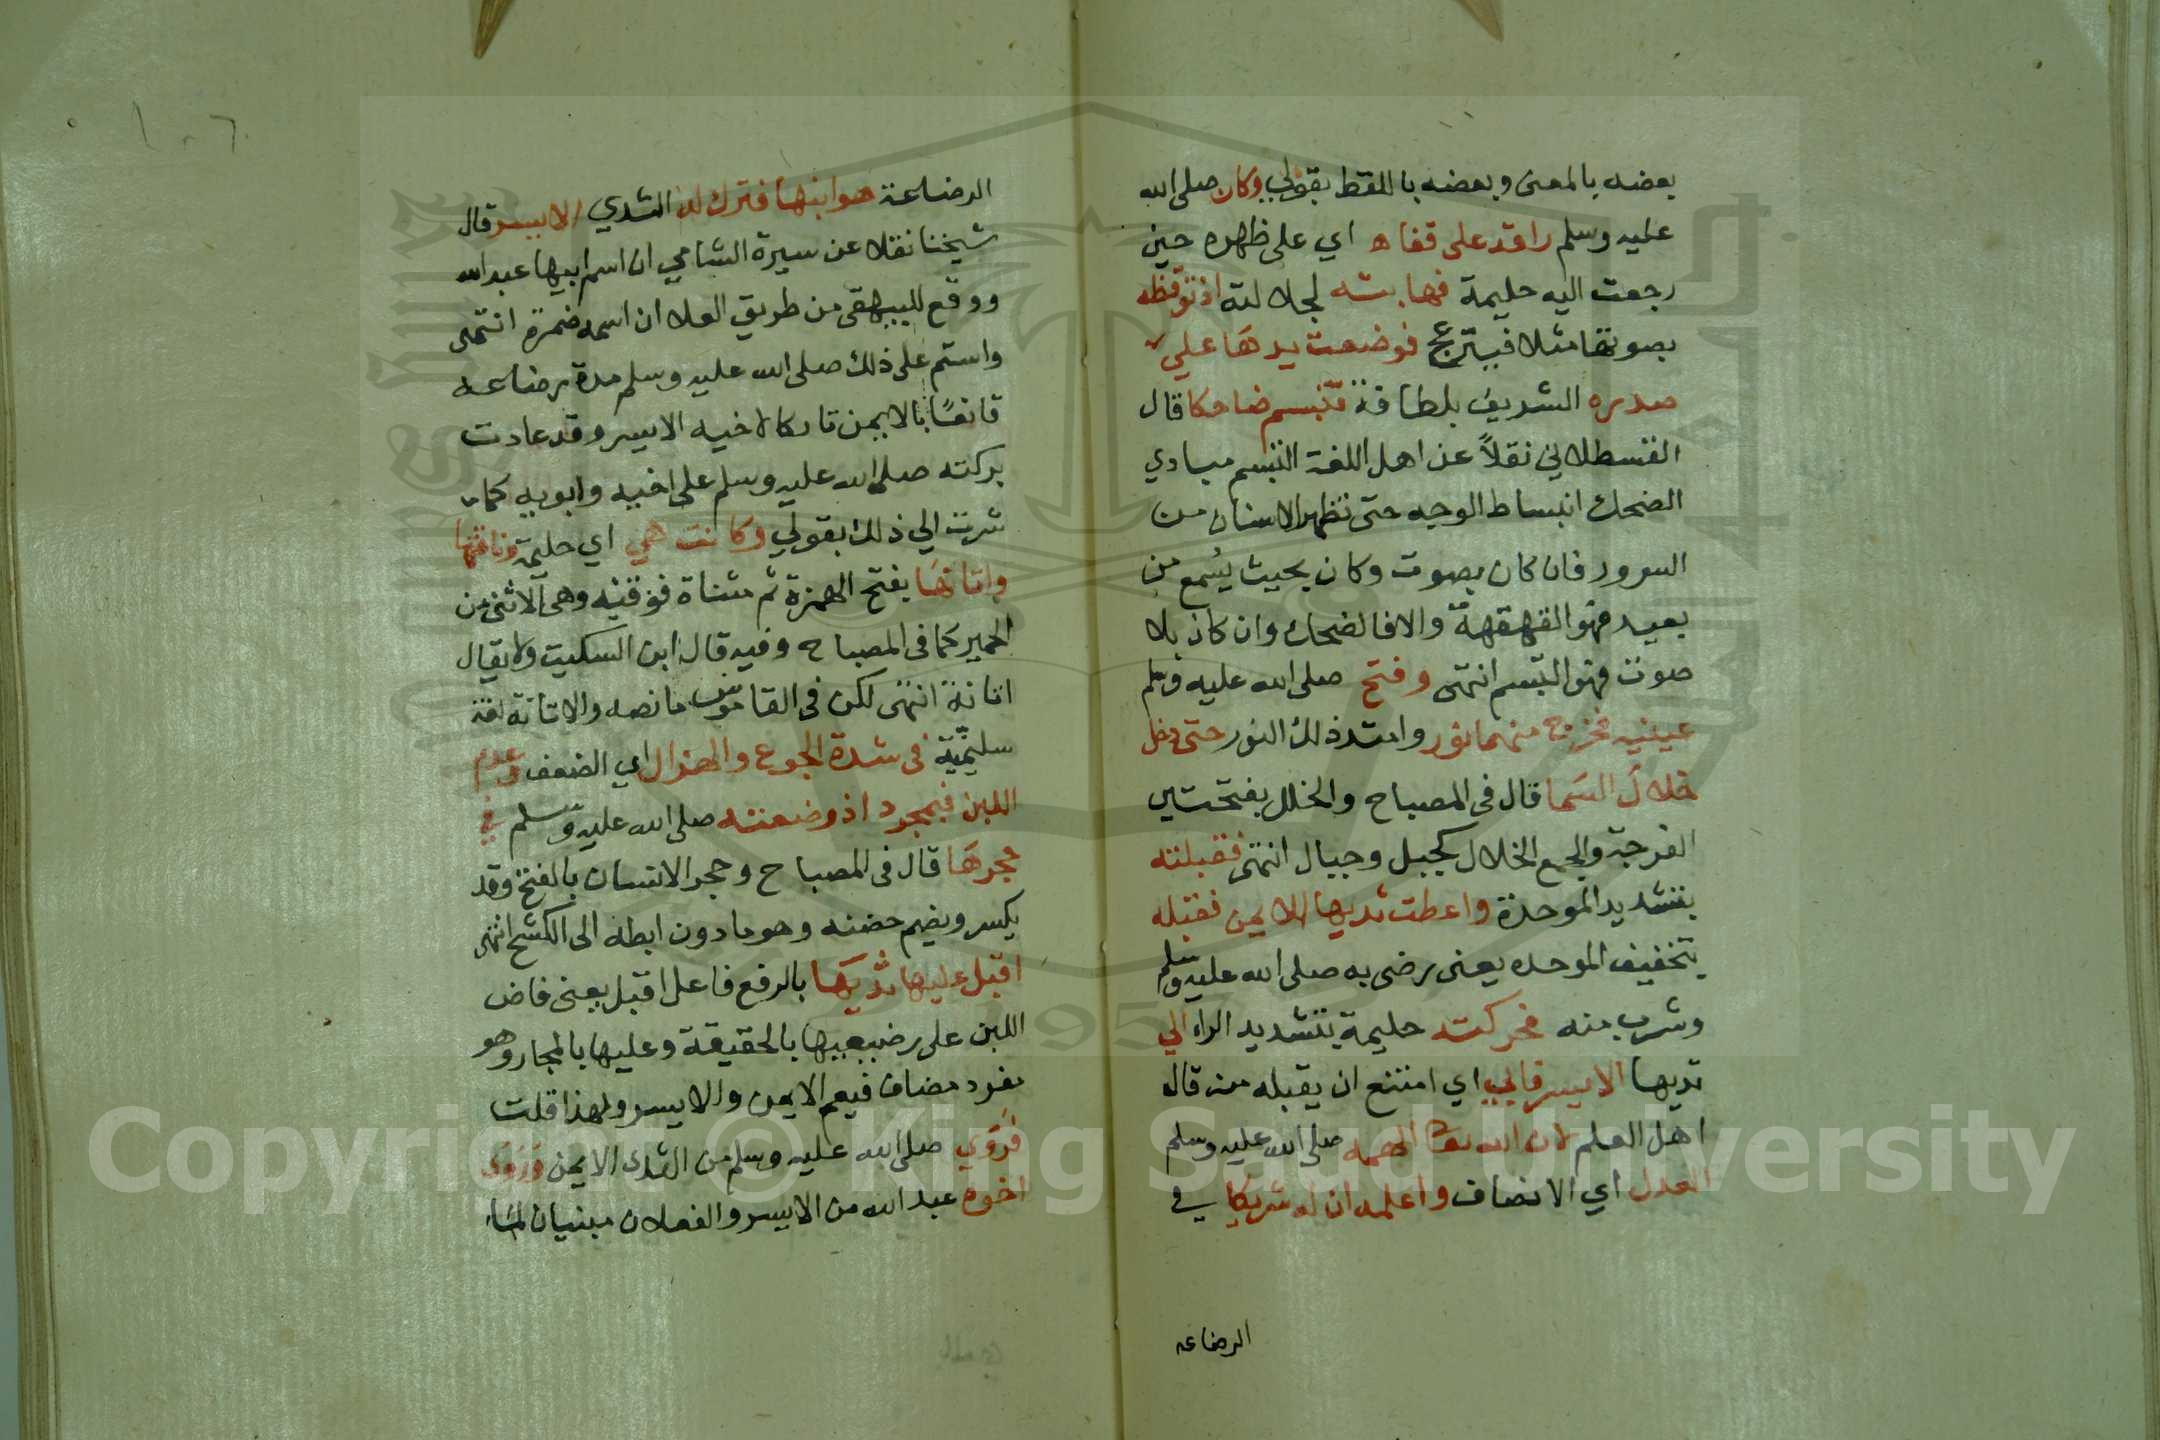 بعضه بالمعنى وبعضه باللفظ بقولي وكان صلى الله
عليه وسلم راقد على قفاه اي على ظهره حين
رجعت اليه حليمة فهابته لجلالته ان توقظه
بصوتها مثلا فينزعج فوضعت يدها على
صدره الشريف بلطافة فتبسم ضاحكا قال
القسطلاني نقلاً عن اهل اللغة التبسم مبادي
الضحك انبساط الوجه حتى تظهر الاسنان من
السرور فان كان بصوت وكان بحيث يُسمع من
بعيد فهو القهقهة والا فالضحك وان كان بلا
صوت فهو التبسم انتهى وفتح صلى الله عليه وسلم
عينيه فخرج منهما نور وامتد ذلك النور حتى دخل
خلال السما قال في المصباح والخلل بفتحتين
الفرجة والجمع الخلال كجبل وجبال انتهى فقبلته
بتشديد الموحدة واعطت ثديها الايمن فقبله
بتخفيف الموحده يعني رضي به صلى الله عليه وسلم
وشرب منه فحركته حليمة بتشديد الراء الي
ثديها الايسر فابي اي امتنع ان يقبله من قال
اهل العلم لان الله الهمه صلى الله عليه وسلم
العدل اي الانصاف واعلمه ان له شريكا في
الرضاعه
١٠٦
الرضاعة هو ابنها فترك له الثدي الايسر قال
شيخنا نقلا عن سيرة الشامي ان اسم ابيها عبد الله
ووقع للبيهقي من طريق العلا ان اسمه ضمرة انتهى
واستم على ذلك صلى الله عليه وسلم مدة رضاعه
قانعًا بالايمن تاركا لاخيه الايسر وقد عادت
بركته صلى الله عليه وسلم على اخيه وابويه كما
شرت الي ذلك بقولي وكانت هي اي حليمة وناقتها
واتانها بفتح الهمزة ثم مثناة فوقيه وهي الانثى من
الحمير كما في المصباح وفيه قال ابن السكيت ولا يقال
اتانة انتهى لكن في القاموس ما نصه والاتانة لغة
سليمية في شدة الجوع والهزال اي الضعف وعدم
اللبن فبمجرد اذ وضعته صلى الله عليه وسلم في
حجرها قال في المصباح وحجر الانسان بالفتح وقد
يكسر ويضم حضنه وهو ما دون ابطه الى الكشح انتهى
اقبل عليها ثديها بالرفع فاعل اقبل يعني فاض
اللبن على رضيعيها بالحقيقة وعليها بالمجاز وهو
مفرد مضاف فيعم الايمن والايسر ولهذا قلت
فروي صلى الله عليه وسلم من الثدى الايمن وروى
اخوه عبد الله من الايسر والفعلان مبنيان
Copyright © King Saud University
1957